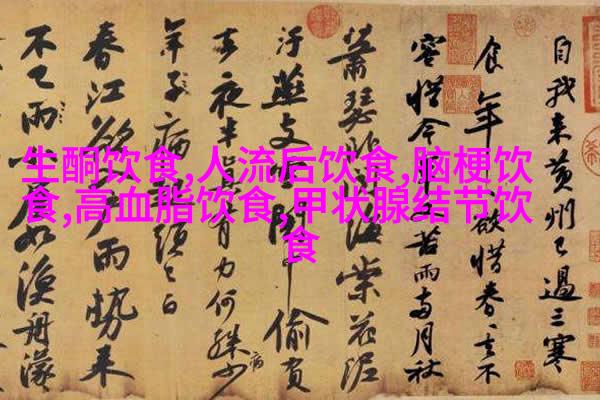 生酮饮食,人流后饮食,脑梗饮
食,高血脂饮食,甲状腺结节饮
食
自我来黄州已過三寒
食年欲惜春去不
容惜今年苦雨兩月秋
蕭瑟卧聞海棠花泥
汙燕支雪偷負
去夜半有力何殊少
病
年子病頭已白
春江欲入户雨勢来
不已雨小屋如漁舟濛